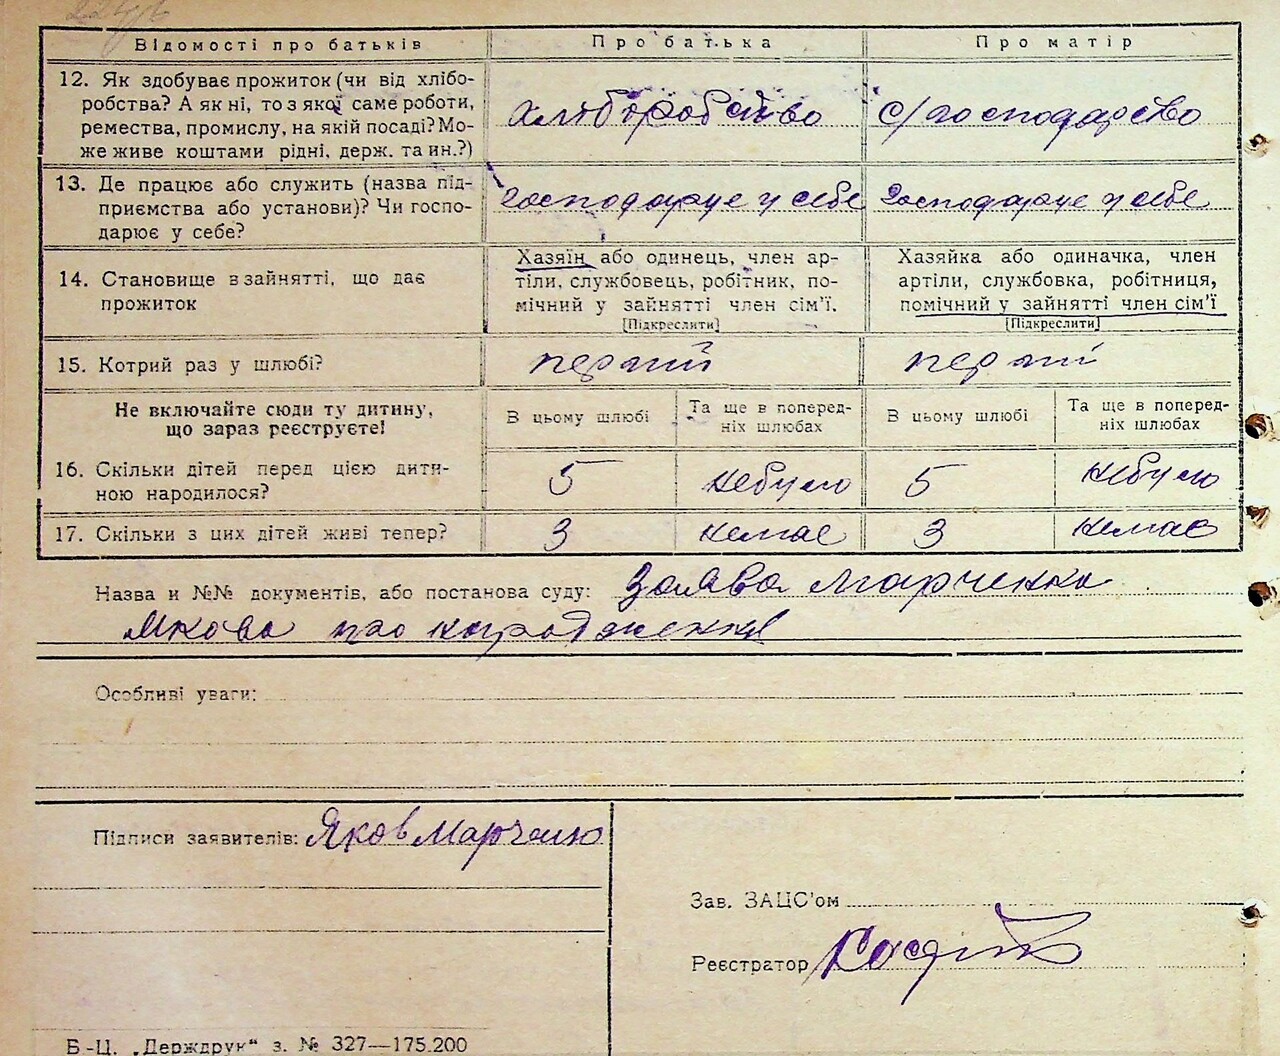 Відомості про батьків
Про батька
Про матір
12. Як здобуває прожиток (чи від хлібо-
робства? А як ні, то з якої саме роботи,
ремества, промислу, на якій посаді? Мо-
же живе коштами рідні, держ. та ин.?)
Хліборобство
с/господарство
13. Де працює або служить (назва під-
приємства або установи)? Чи госпо-
дарює у себе?
Господарює у себе
Господарює у себе
14. Становище в зайнятті, що дає
прожиток
Хазяїн або одинець, член ар-
тіли, службовець, робітник, по-
мічний у зайнятті член сім'ї.
[Підкреслити]
Хазяйка або одиначка, член
артіли, службовка, робітниця,
помічний у зайнятті член сім'ї
[Підкреслити]
15. Котрий раз у шлюбі?
перший
перший
Не включайте сюди ту дитину,
що зараз реєструєте!
В цьому шлюбі
Та ще в поперед-
ніх шлюбах
В цьому шлюбі
Та ще в поперед-
ніх шлюбах
16. Скільки дітей перед цією дити-
ною народилося?
5
небуло
5
небуло
17. Скільки з цих дітей живі тепер?
3
немає
3
немає
Назва и №№ документів, або постанова суду: Заява Марченка
Якова про народження
Особливі уваги:
Підписи заявителів: Яков Марченко
Зав. ЗАЦС'ом
Реєстратор
Б-Ц. „Держдрук“ з. № 327—175.200